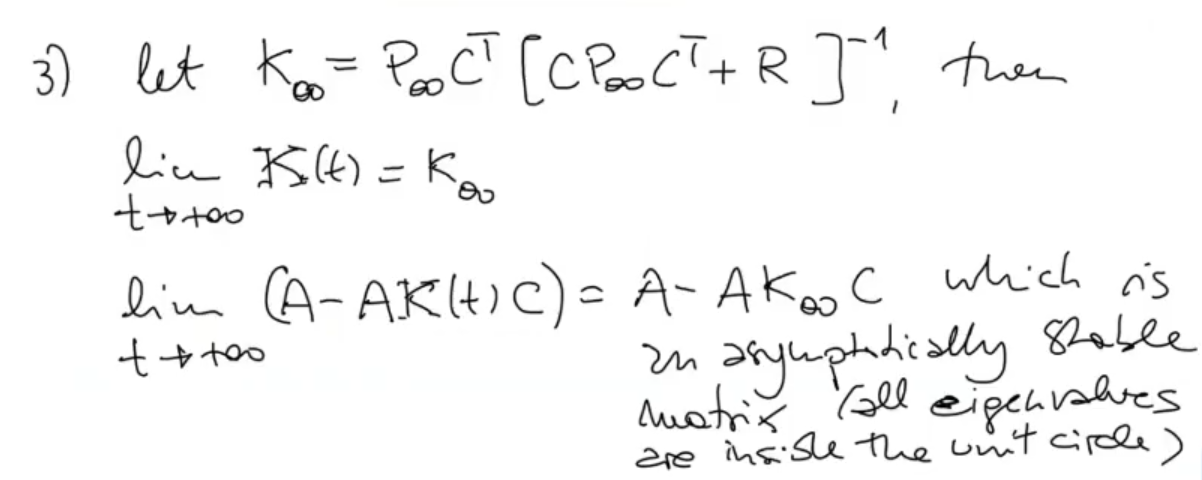 3) let K∞ = P∞Cᵀ [CP∞Cᵀ + R]⁻¹, then
lim K(t) = K∞
t→+∞
lim (A - AK(t)C) = A - AK∞C which is
t→+∞
an asymptotically stable
matrix (all eigenvalues
are inside the unit circle)